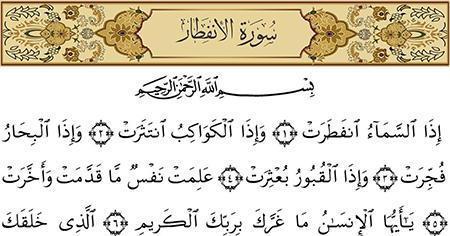 سُورَةُ الِانفِطَارِ
بِسْمِ ٱللَّهِ ٱلرَّحْمَٰنِ ٱلرَّحِيمِ
إِذَا ٱلسَّمَآءُ ٱنفَطَرَتْ ﴿١﴾ وَإِذَا ٱلْكَوَاكِبُ ٱنتَثَرَتْ ﴿٢﴾ وَإِذَا ٱلْبِحَارُ
فُجِّرَتْ ﴿٣﴾ وَإِذَا ٱلْقُبُورُ بُعْثِرَتْ ﴿٤﴾ عَلِمَتْ نَفْسٌ مَّا قَدَّمَتْ وَأَخَّرَتْ
﴿٥﴾ يَٰٓأَيُّهَا ٱلْإِنسَٰنُ مَا غَرَّكَ بِرَبِّكَ ٱلْكَرِيمِ ﴿٦﴾ ٱلَّذِى خَلَقَكَ